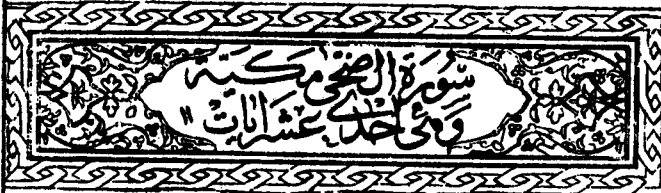 سُورَةُ الضُّحٰى مَكِّيَّةٌ
وَهِيَ إِحْدٰى عَشَرَ اٰيَاتٍ ١١